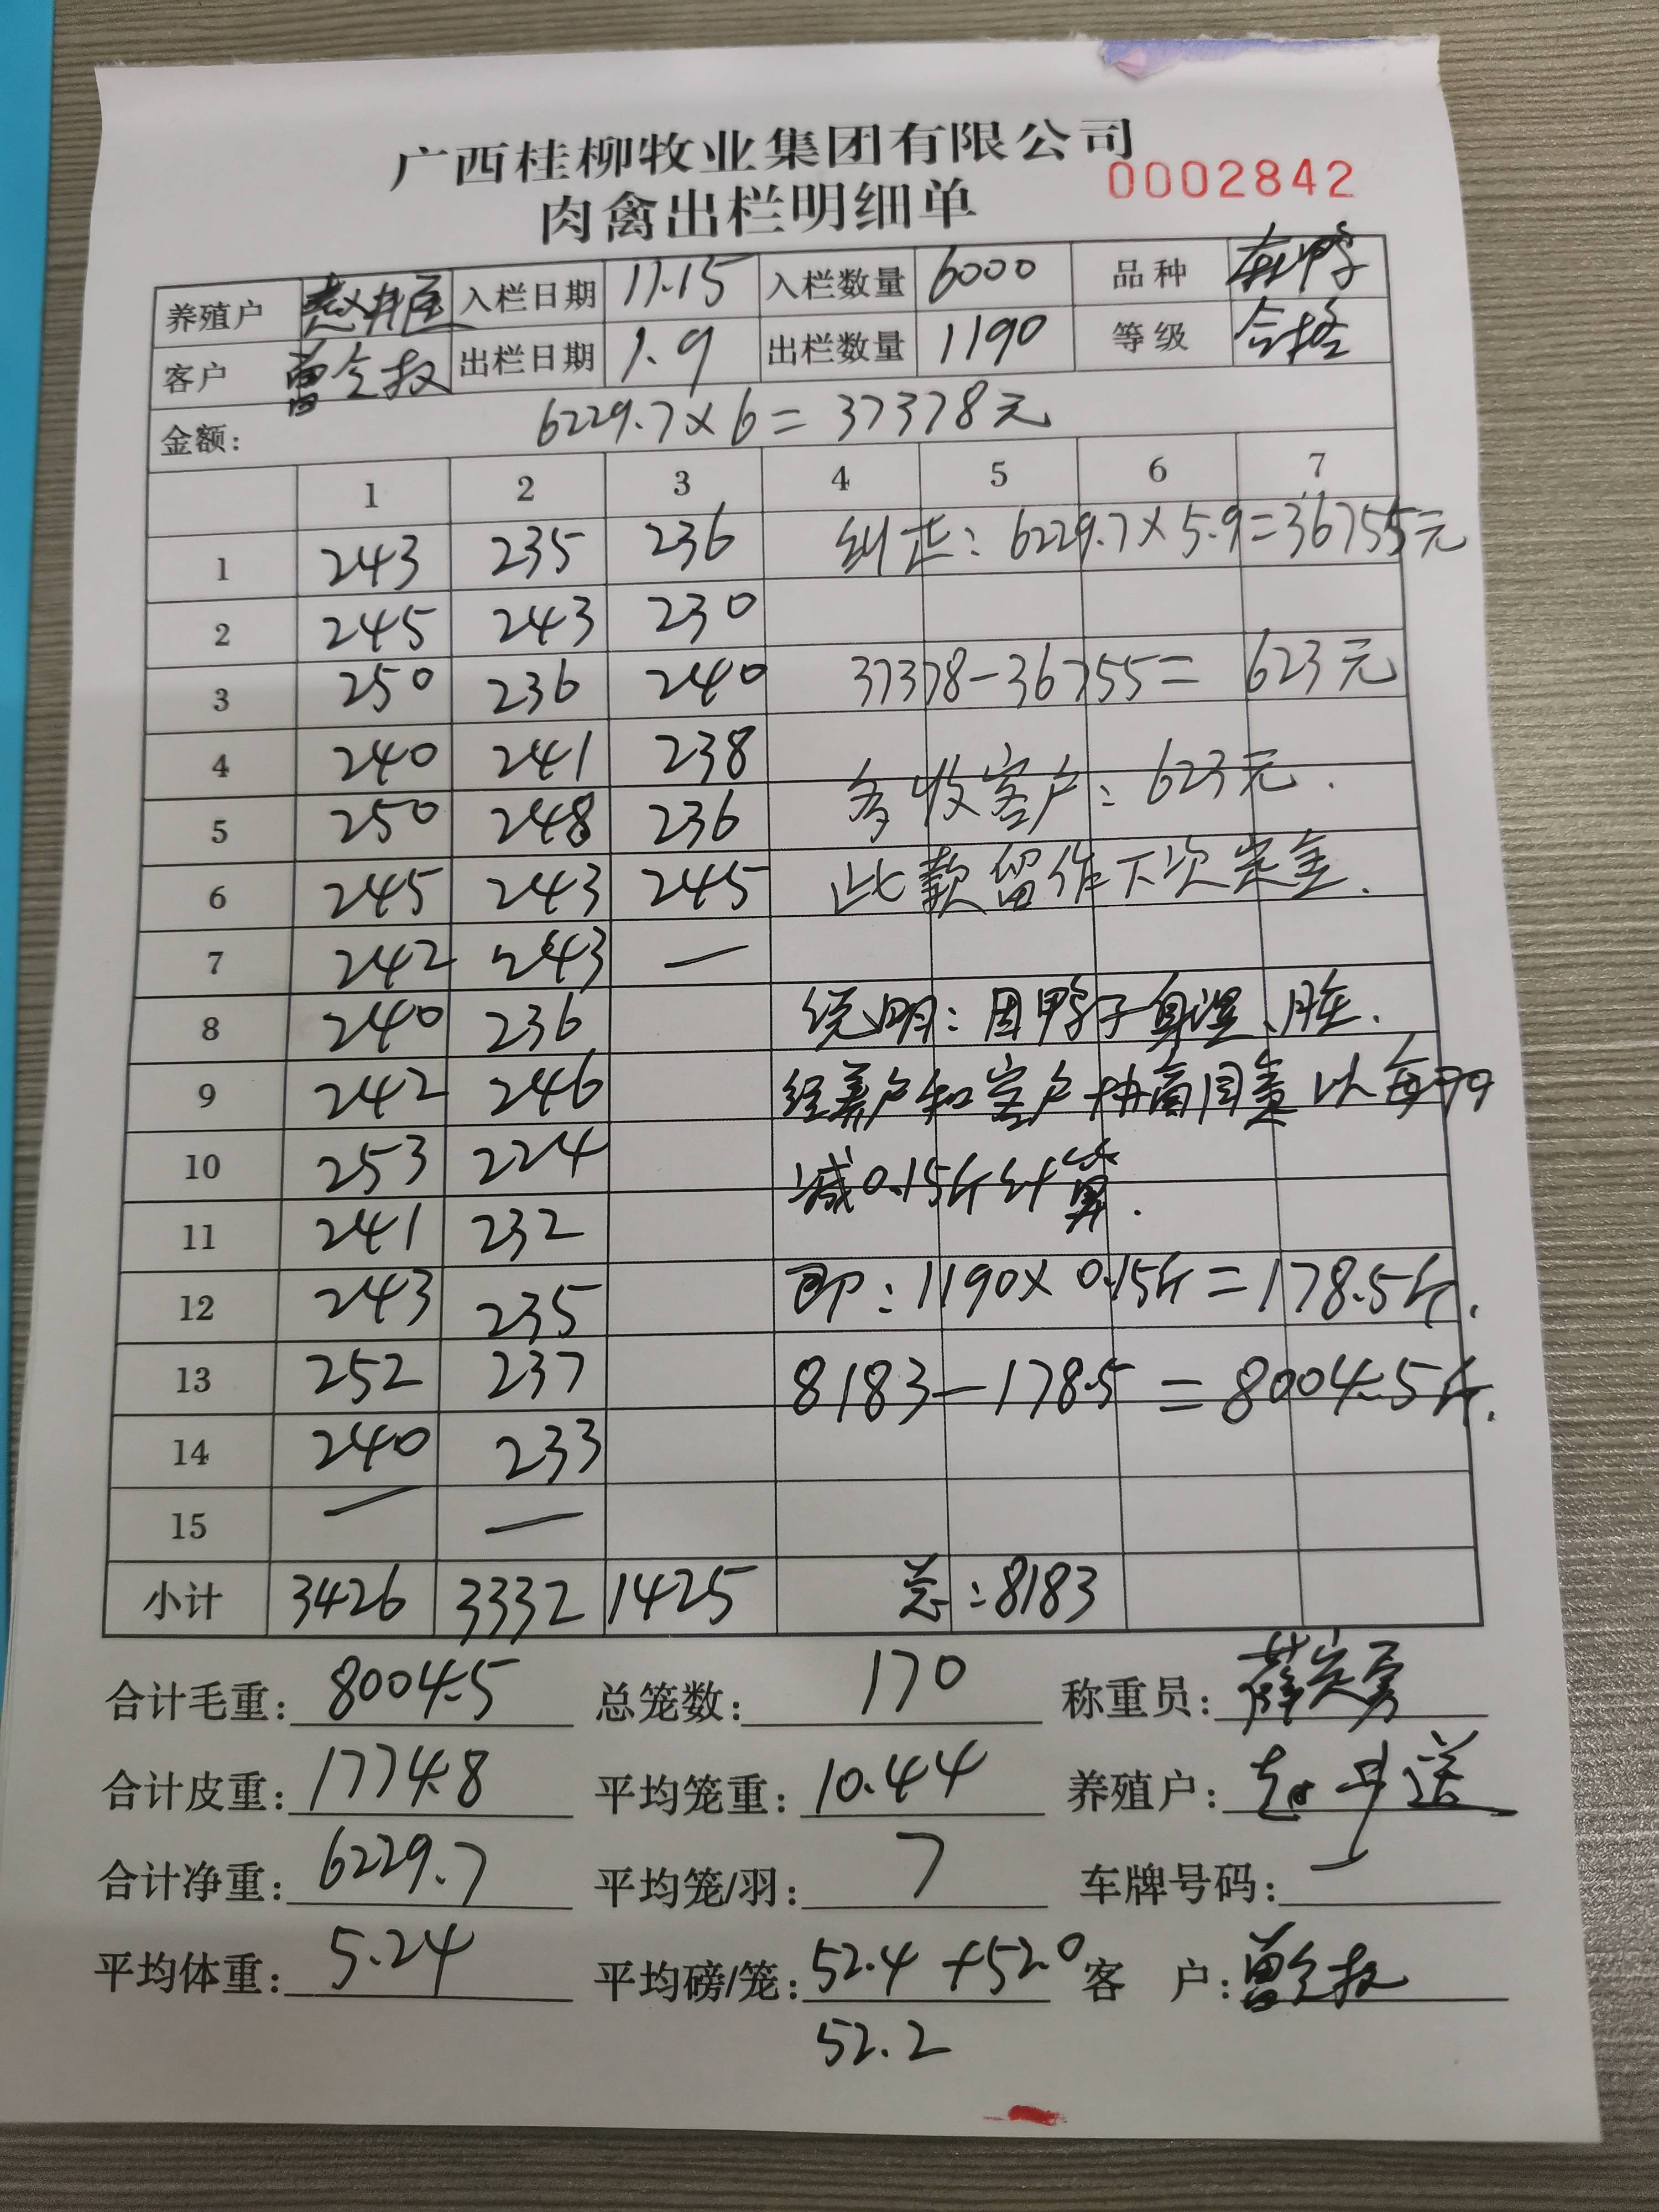 广西桂柳牧业集团有限公司
肉禽出栏明细单 0002842
养殖户 入栏日期 11.15 入栏数量 6000 品种
客户 曾令权 出栏日期 1.9 出栏数量 1190 等级 合格
金额: 6229.7×6=37378元
1 2 3 4 5 6 7
1 243 235 236 纠正:6229.7×5.9=36755元
2 245 243 230
3 250 236 240 37378-36755=623元
4 240 241 238 多收客户:623元.
5 250 248 236
6 245 243 245 此款留作下次定金.
7 242 243 —
8 240 236 说明:因鸭子身湿、脏.
9 242 246 经养户和客户协商同意以每羽
10 253 224 减0.15斤计算.
11 241 232
12 243 235 即:1190×0.15斤=178.5斤.
13 252 237 8183-178.5=8004.5斤.
14 240 233
15 — —
小计 3426 3332 1425 总:8183
合计毛重: 8004.5 总笼数: 170 称重员:
合计皮重: 1774.8 平均笼重: 10.44 养殖户:
合计净重: 6229.7 平均笼/羽: 7 车牌号码:
平均体重: 5.24 平均磅/笼: 52.4+52.0 客 户: 曾令权
52.2